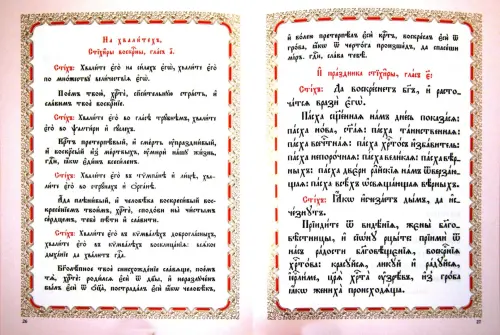 На хвали́техъ.
Стїхи́ры воскрⷭ҇ны, гла́съ а҃.
Сті́хъ: Хвали́те є҆го̀ на си́лахъ є҆гѡ̀, хвали́те є҆го̀
по мно́жеству вели́чествїѧ є҆гѡ̀.
Пое́мъ твою̀, хрⷭ҇тѐ, спаси́тельную стра́сть, и҆
сла́вимъ твоѐ воскрⷭ҇нїе.
Сті́хъ: Хвали́те є҆го̀ во гла́сѣ тру́бнѣмъ, хвали́те
є҆го̀ во ѱалти́ри и҆ гꙋ́слехъ.
Крⷭ҇тъ претерпѣ́вый, и҆ сме́рть ᲂу҆праздни́вый,
и҆ воскрⷭ҇ы́й и҆з̾ ме́ртвыхъ, ᲂу҆мирѝ на́шу жи́знь,
гдⷭ҇и, ꙗ҆́кѡ є҆ди́нъ всеси́ленъ.
Сті́хъ: Хвали́те є҆го̀ въ тѷмпа́нѣ и҆ ли́цѣ, хва-
ли́те є҆го̀ во стру́нахъ и҆ ѻ҆рга́нѣ.
А҆́да плѣни́вый, и҆ человѣ́ка воскреси́вый вос-
кресе́нїемъ твои́мъ, хрⷭ҇тѐ, сподо́би ны̀ чи́стымъ
се́рдцемъ, тебѐ пѣ́ти и҆ сла́вити.
Сті́хъ: Хвали́те є҆го̀ въ кѷмва́лѣхъ доброгла́сныхъ,
хвали́те є҆го̀ въ кѷмва́лѣхъ восклица́нїѧ: всѧ́кое
дыха́нїе да хва́литъ гдⷭ҇а.
Бг҃олѣ́пное твоѐ снизхожде́нїе сла́вѧще, пое́мъ
тѧ̀, хрⷭ҇тѐ: роди́лсѧ є҆сѝ ѿ дв҃ы, и҆ неразлꙋ́ченъ
бы́лъ є҆сѝ ѿ ѻ҆ц҃а̀, пострада́лъ є҆сѝ ꙗ҆́кѡ человѣ́къ,
26
и҆ во́лею претерпѣ́лъ є҆сѝ крⷭ҇тъ, воскре́слъ є҆сѝ ѿ
гро́ба, ꙗ҆́кѡ ѿ черто́га произше́дъ, да спасе́ши
мі́ръ, гдⷭ҇и, сла́ва тебѣ̀.
И҆ пра́здника стїхи́ры, гла́съ є҃:
Сті́хъ: Да воскре́снетъ бг҃ъ, и҆ расто-
ча́тсѧ вразѝ є҆гѡ̀.
Па́сха сщ҃е́ннаѧ на́мъ дне́сь показа́сѧ:
па́сха но́ва, ст҃а́ѧ: па́сха таи́нственнаѧ:
па́сха всечⷭ҇тна́ѧ: па́сха хрⷭ҇то́съ и҆зба́витель:
па́сха непоро́чнаѧ: па́сха вели́каѧ: па́сха вѣ́р-
ныхъ: па́сха две́ри ра́йскїѧ на́мъ ѿверза́ю-
щаѧ: па́сха всѣ́хъ ѡ҆свѧща́ющаѧ вѣ́рныхъ.
Сті́хъ: Ꙗ҆́кѡ и҆счеза́етъ ды́мъ, да и҆с-
че́знутъ.
Прїиди́те ѿ видѣ́нїѧ, жєны̀ благо-
вѣ́стницы, и҆ сїѡ́нꙋ рцы́те: прїимѝ
ѿ на́съ ра́дости благовѣще́нїѧ, воскрⷭ҇нїѧ
хрⷭ҇то́ва: красꙋ́йсѧ, ликꙋ́й и҆ ра́дꙋйсѧ,
і҆ерⷭ҇ли́ме, цр҃ѧ̀ хрⷭ҇та̀ ᲂу҆зрѣ́въ, и҆з̾ гро́ба
ꙗ҆́кѡ жениха̀ происходѧ́ща.
27